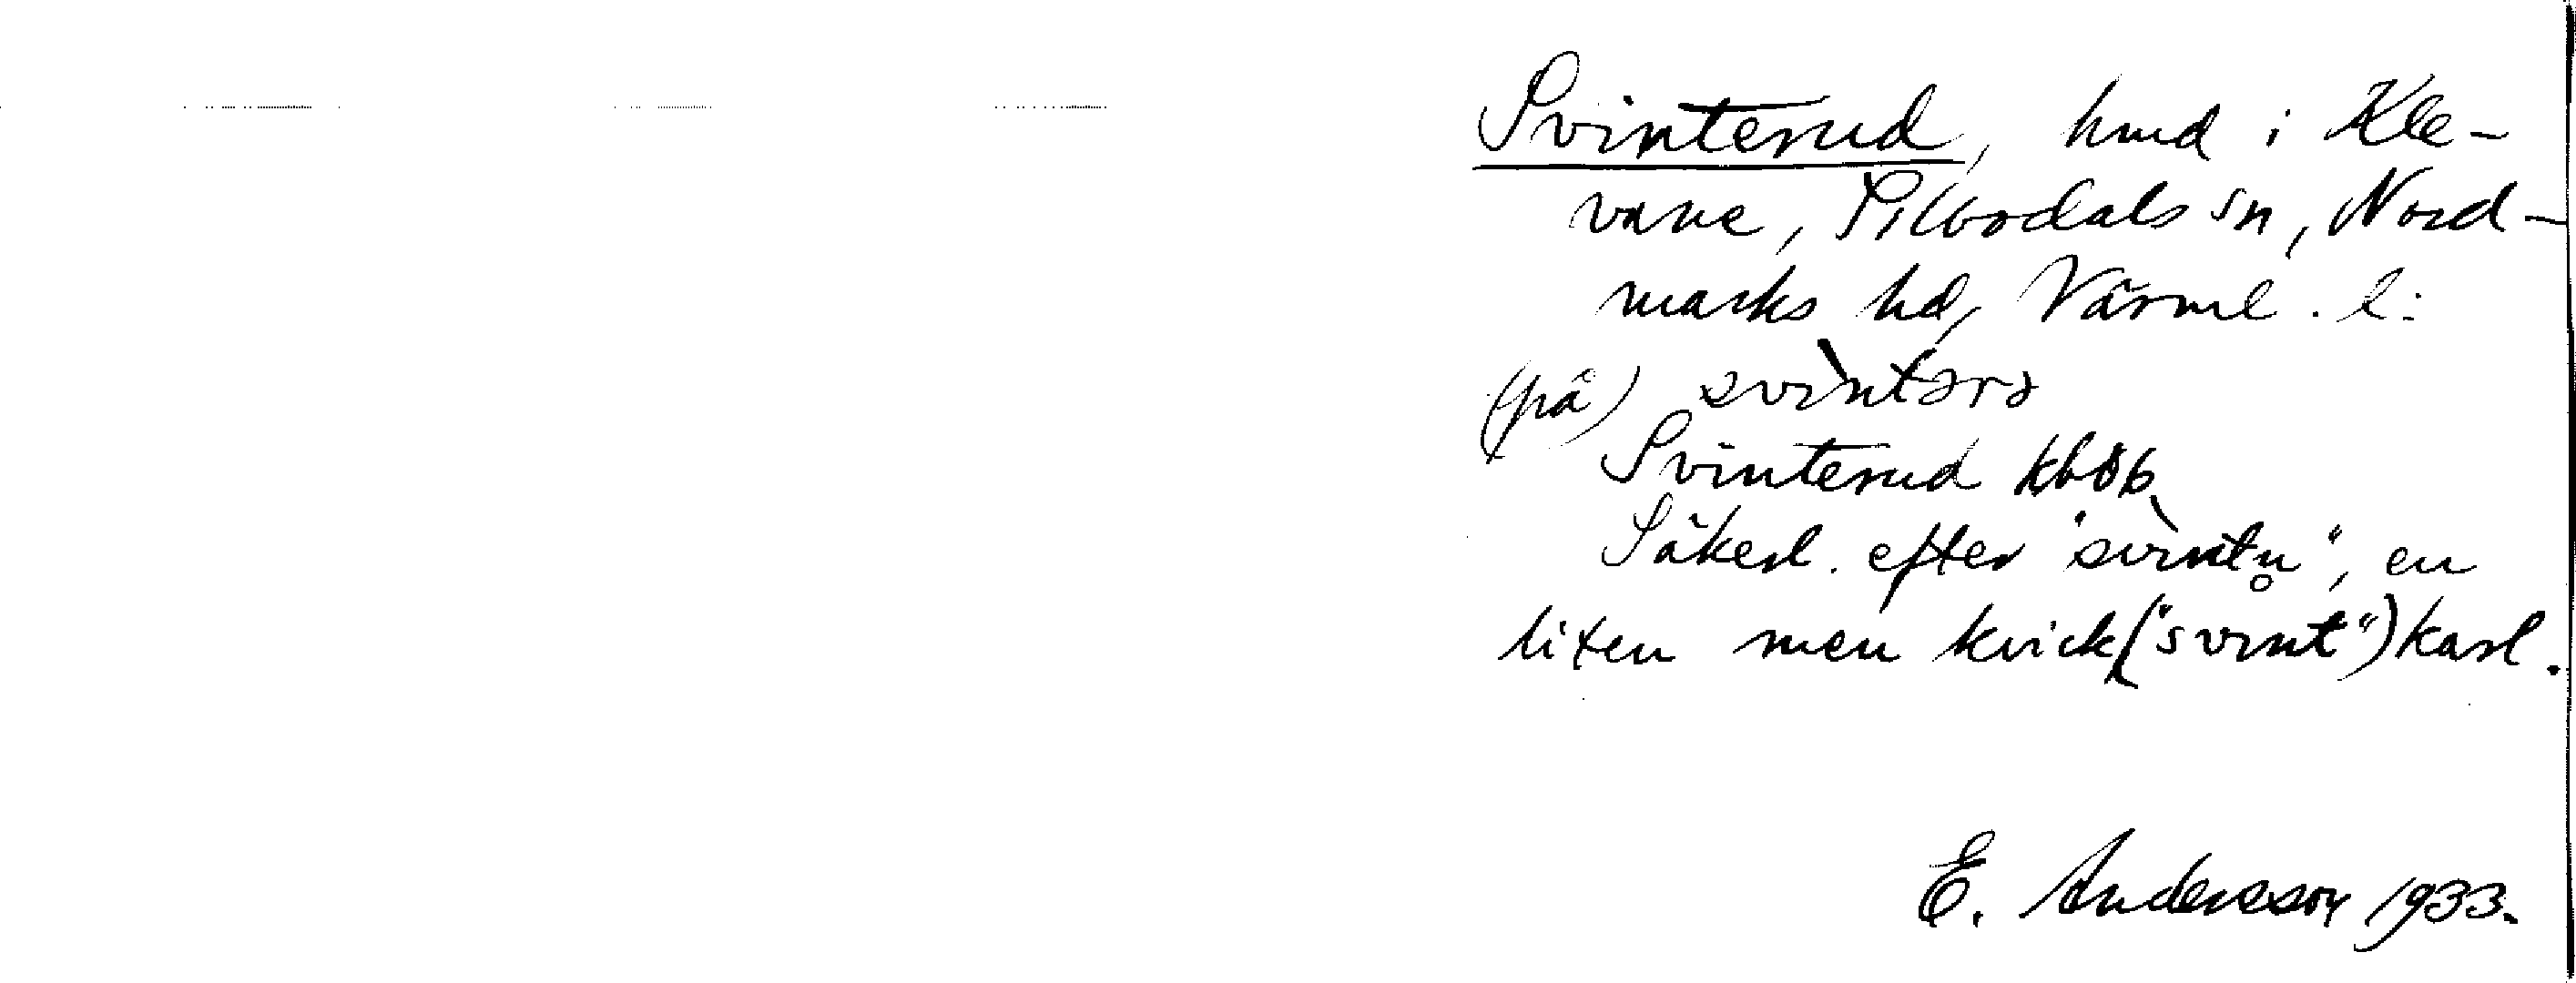 Svinterud, hmd i Kle-
vane, Silbodals sn, Nord-
marks hd, Värml. l:
(på) svìntərə
Svinterud kbok
Säkerl. efter "svìntn̥", en
liten men kvick ("svint") karl.
E. Andersson 1933.